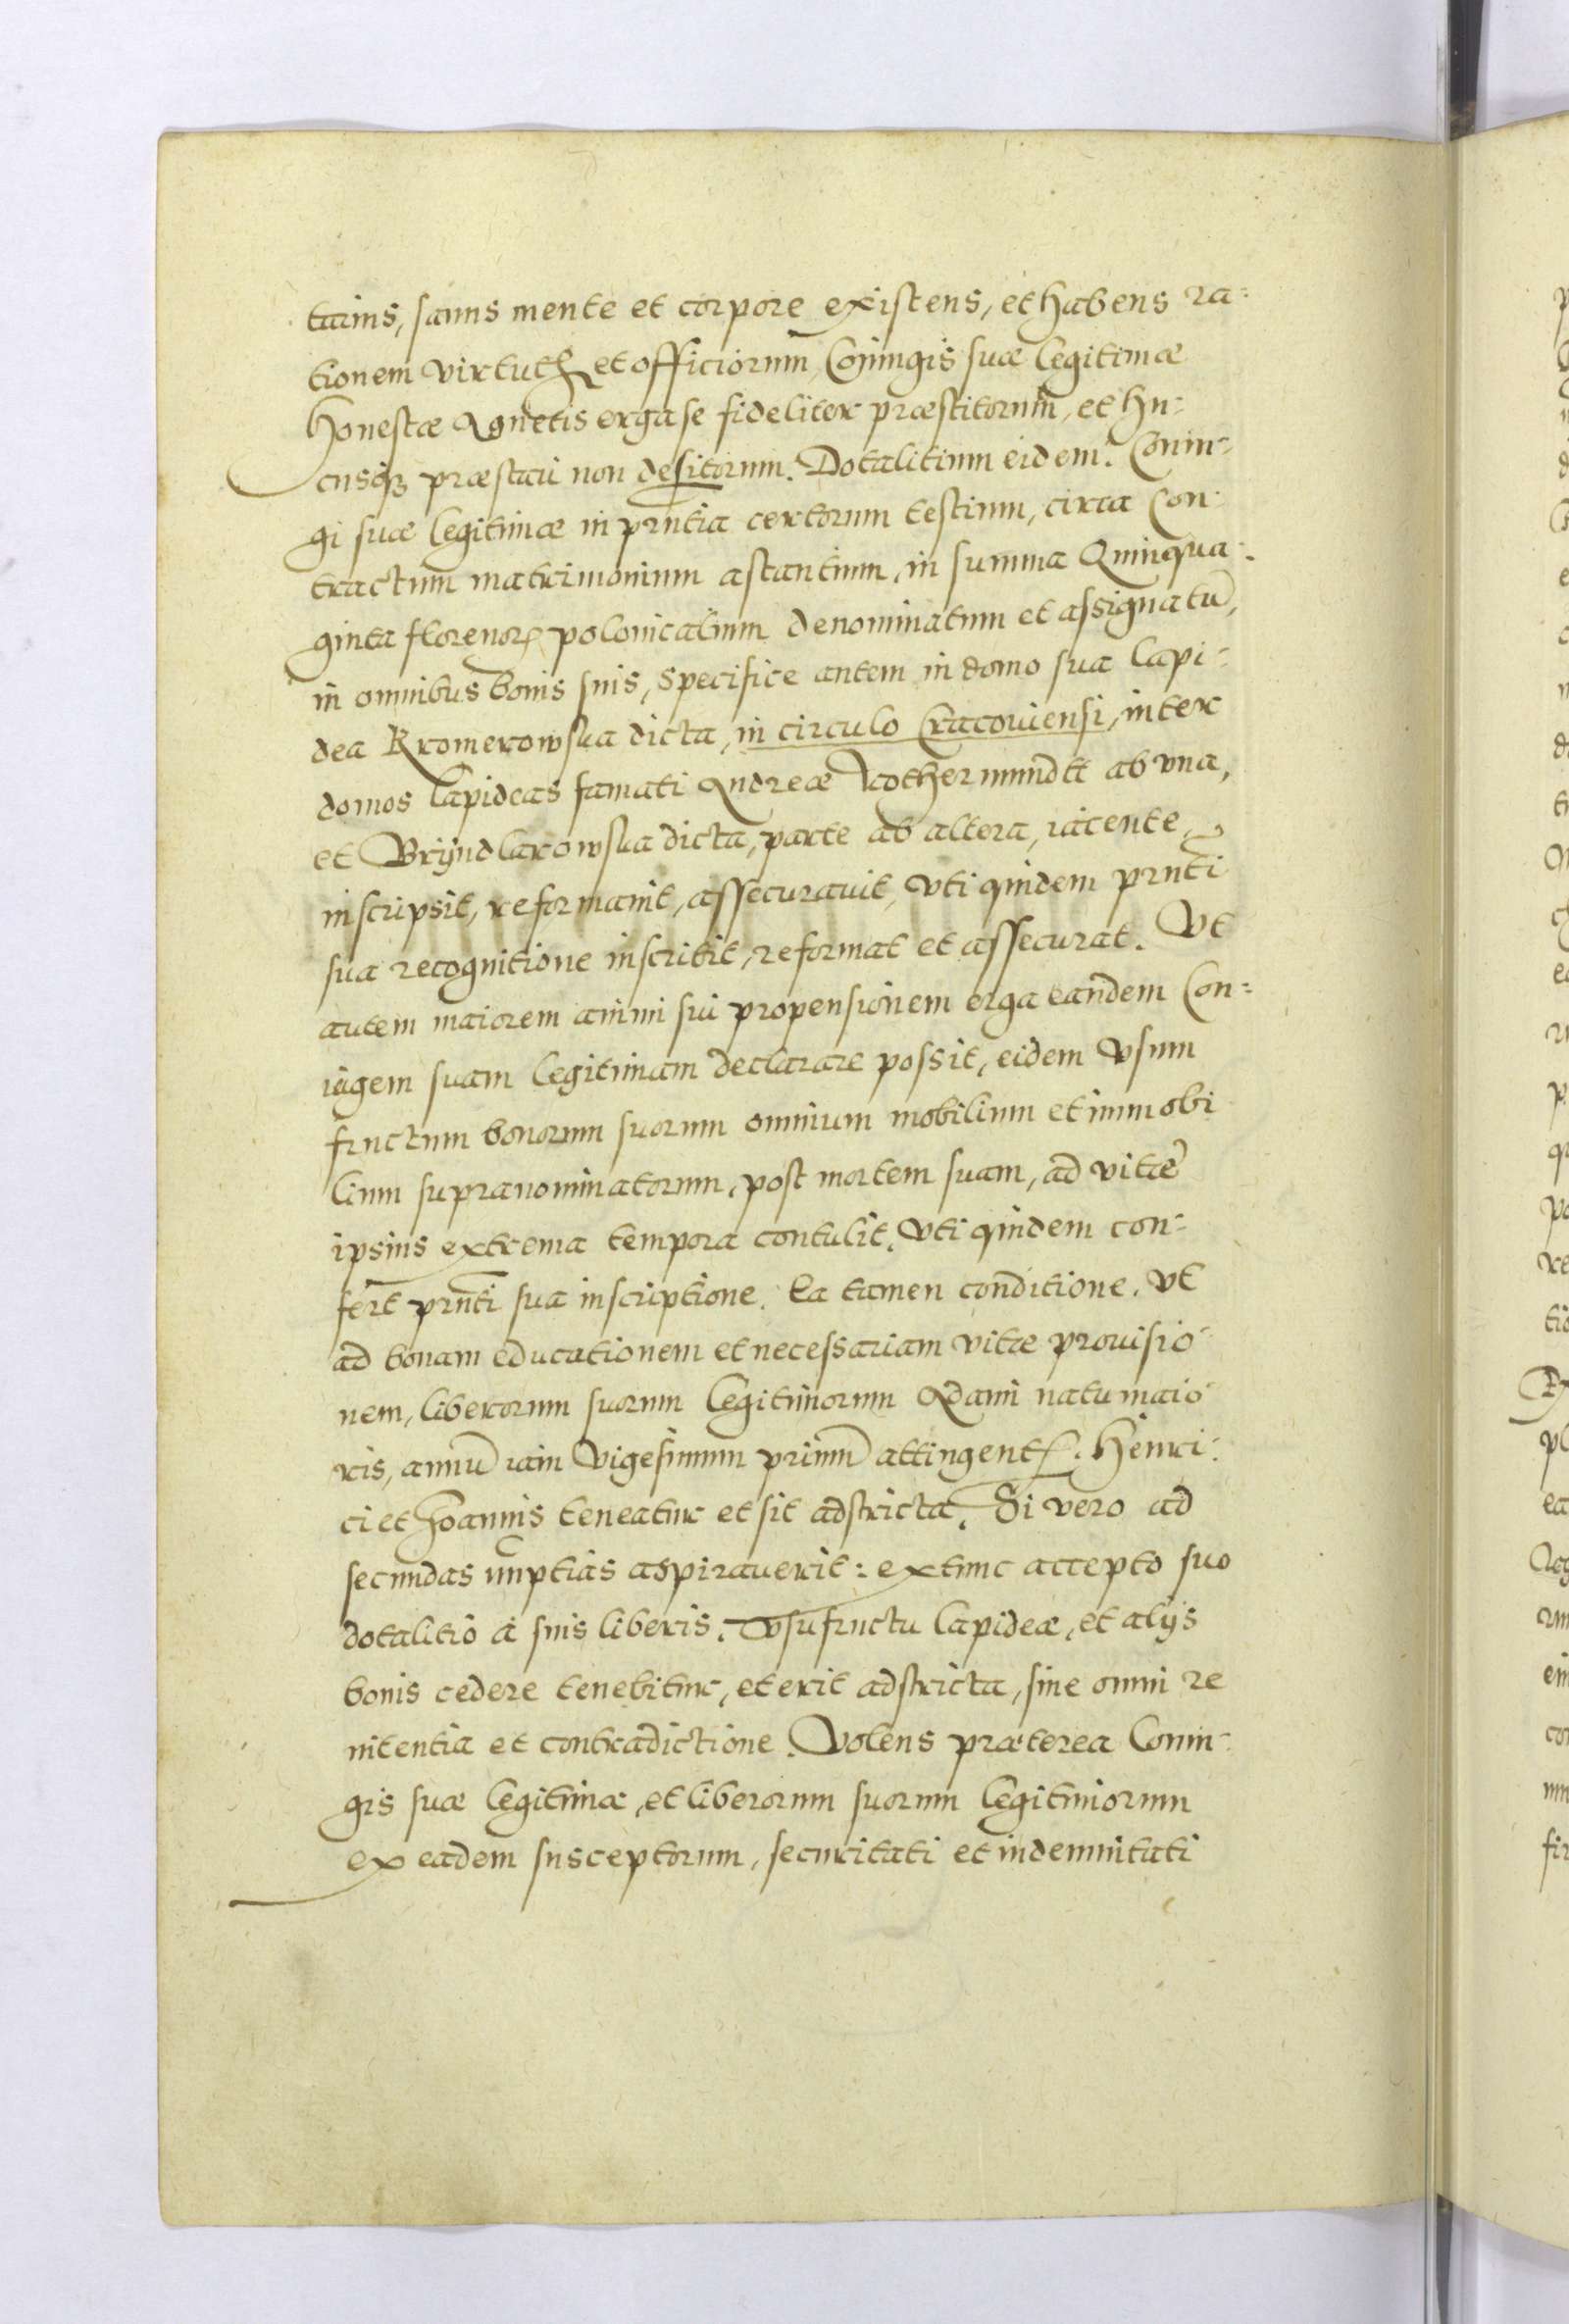 tarius, sanus mente et corpore existens, et habens ra-
tionem virtutum et officiorum, Coniugis suæ legitimæ
Honestæ Agnetis erga se fideliter præstitorum, et hu-
cusq3 præstari non desitorum. Dotalitium eidem Coniu-
gi suæ legitimæ in prntia certorum testium, circa Con-
tractum matrimonium astantium, in summa Quinqua-
ginta florenorum polonicalium denominatum et assignatū,
in omnibus bonis suis, specifice autem in domo sua lapi-
dea Kromerowska dicta, in circulo Cracoviensi, inter
domos lapideas famati Andreæ ab vna,
et Bryndlarowska dicta, parte ab altera, iacente,
inscripsit, reformavit, assecuravit, vti quidem prnti
sua recognitione inscribit, reformat et assecurat. Vt
autem maiorem animi sui propensionem erga eandem Con-
iugem suam legitimam declarare possit, eidem vsum
fructum bonorum suorum omnium mobilium et immobi
lium supranominatorum, post mortem suam, ad vitæ
ipsius extrema tempora contulit, vti quidem con-
fert prnti sua inscriptione. Ea tamen conditione, vt
ad bonam educationem et necessariam vitæ provisio-
nem, liberorum suorum legitimorum Adami natu maio-
ris, annū iam vigesimum primū attingentis, Henri-
ci et Joannis teneatur et sit adstricta. Si vero ad
secundas nuptias aspiraverit: extunc accepto suo
dotalitio à suis liberis, vsufructu lapideæ, et alijs
bonis cedere tenebitur, et erit adstricta, sine omni re
nitentia et contradictione. Volens præterea Coniu-
gis suæ legitimæ, et liberorum suorum legitimorum
ex eadem susceptorum, securitati et indemnitati